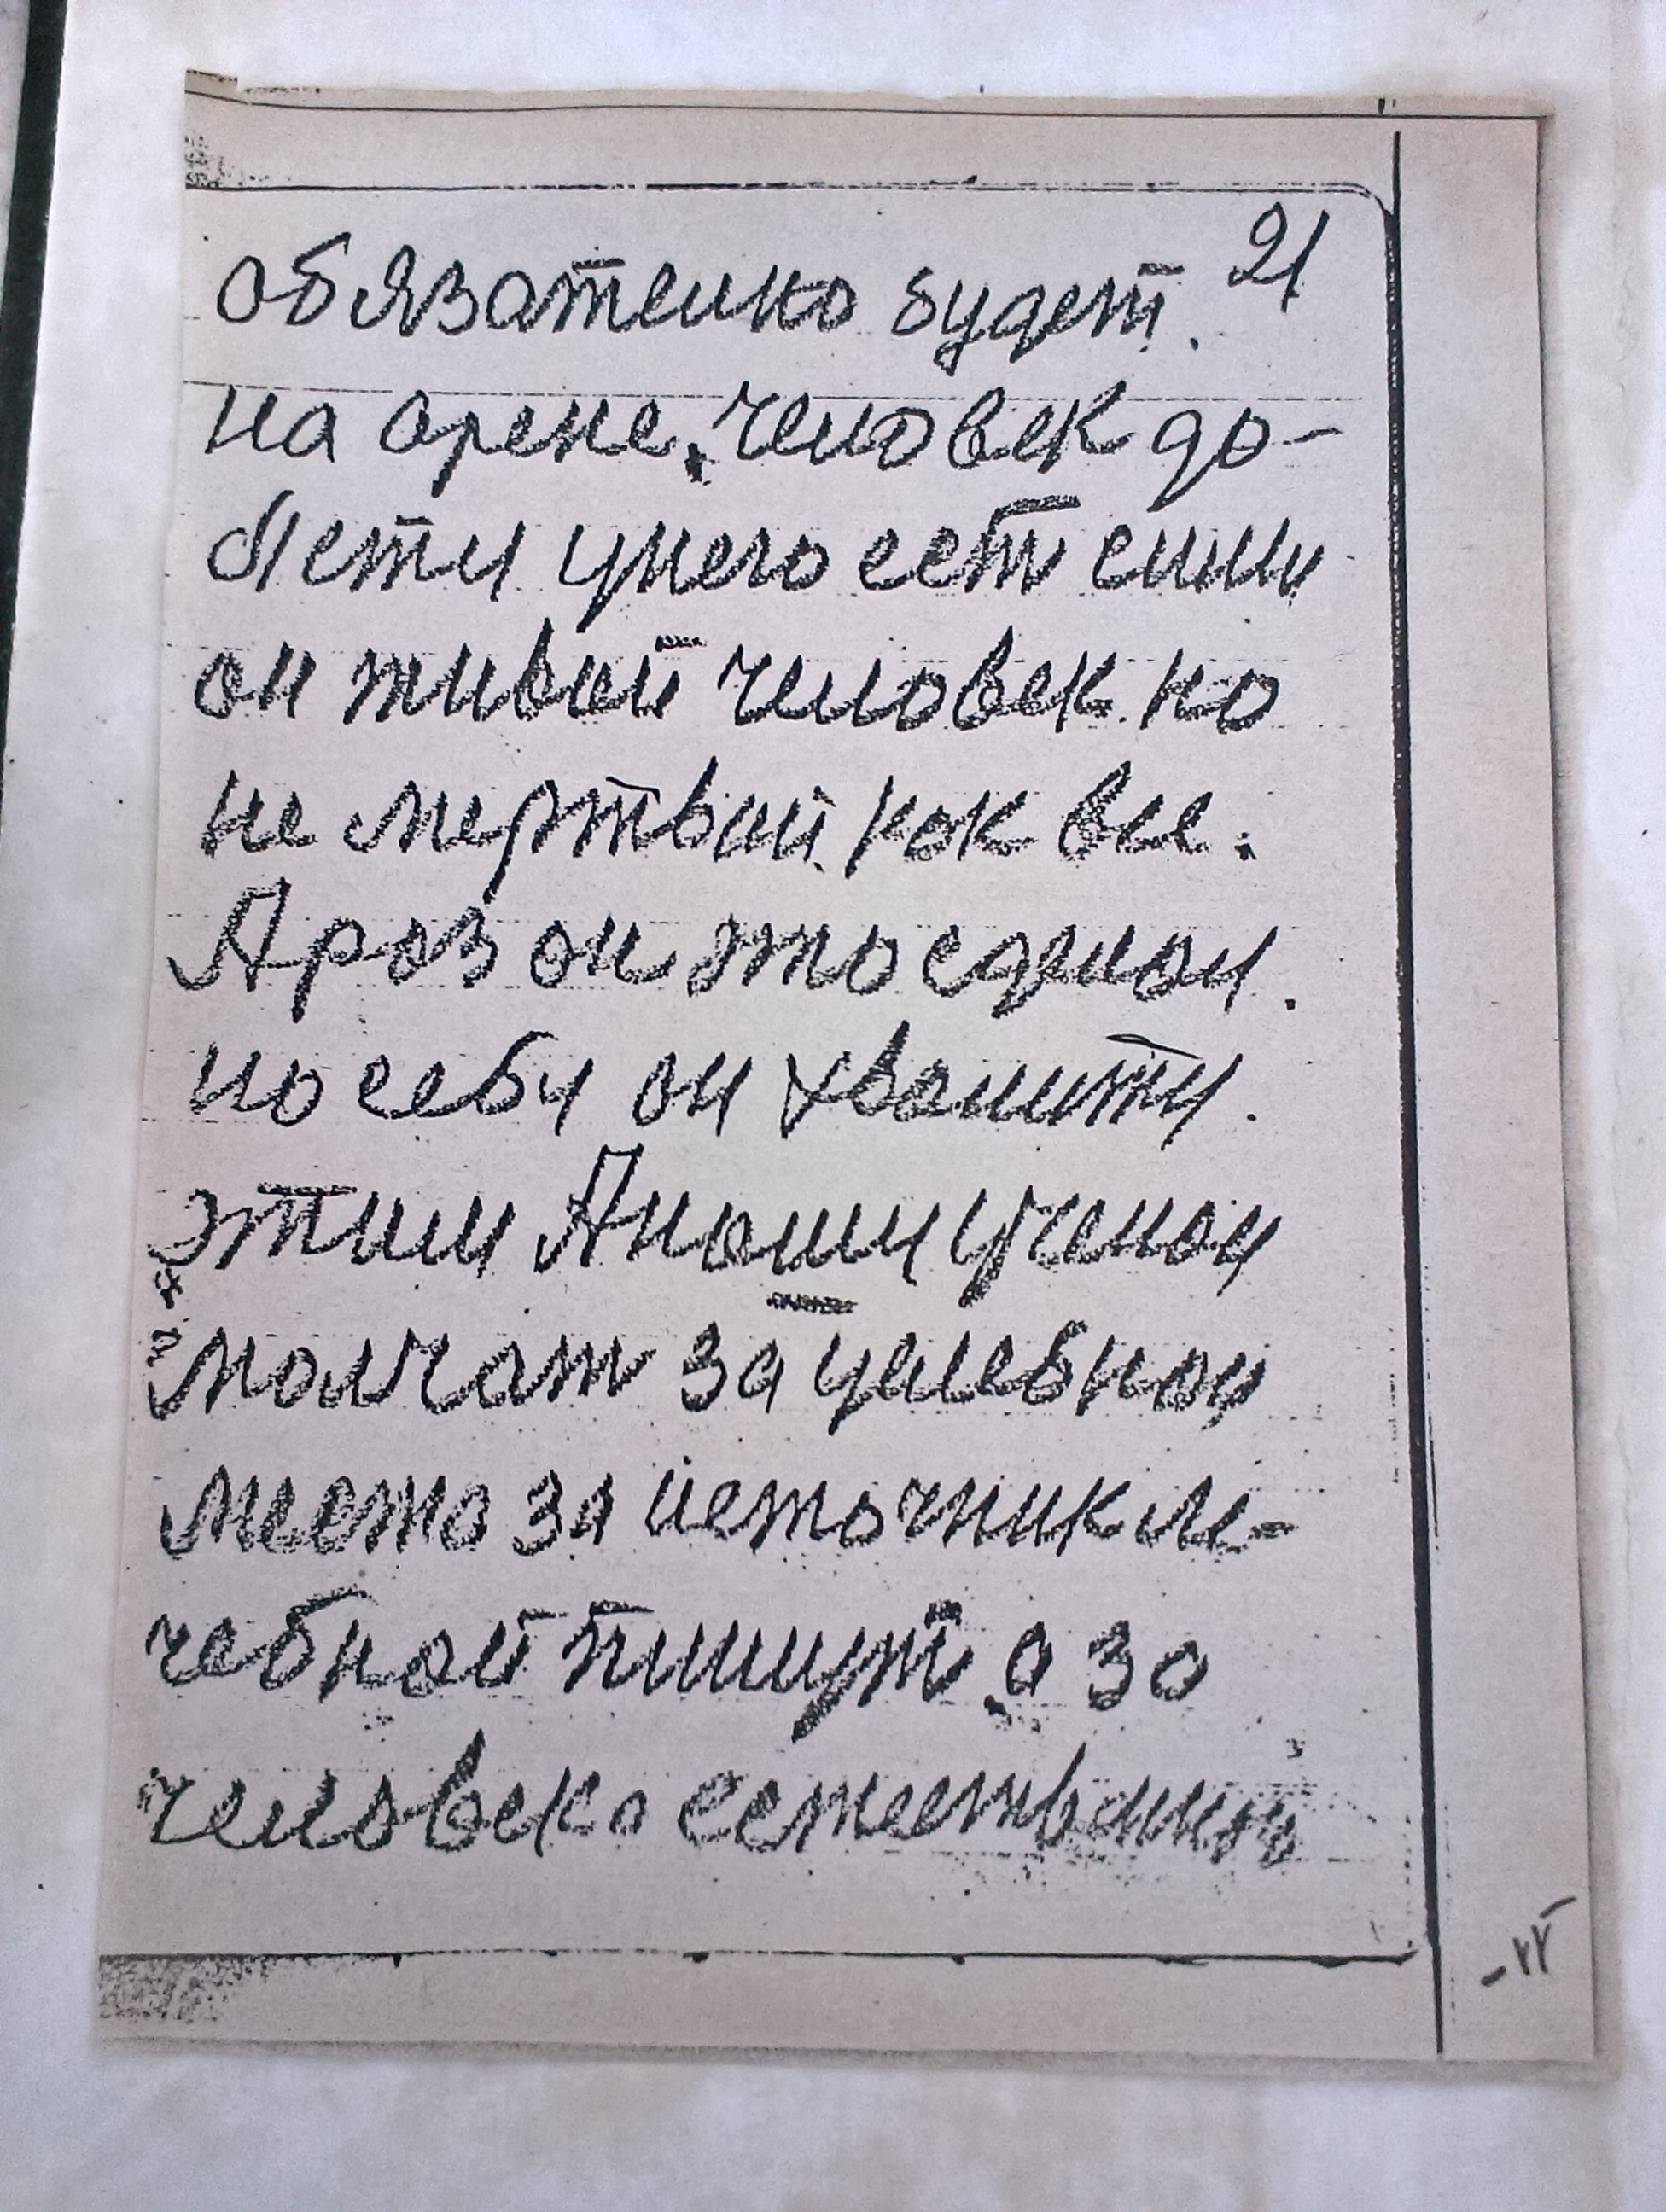 обязателно будет. 21
на арене. человек до-
бети у него ест сили
он живой человек но
не мертвый как все.
А раз он это сделал.
по себу он хвалиту.
этим А наши ученои
молчат за целебнои
место за источник ле-
чебной пишут. а за
человека естественной